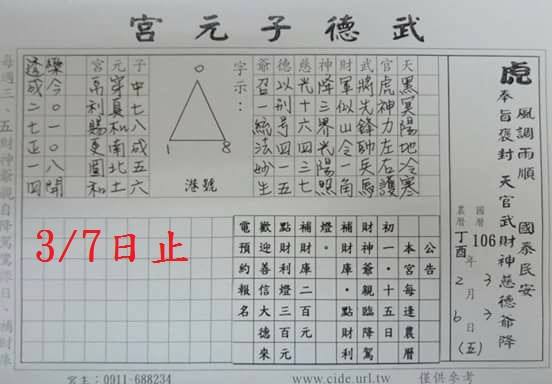 武德子元宮
虎
風調雨順 國泰民安
奉旨褒封 天官武財神慈德爺降
國曆 106 年 3 月 3 日 (五)
農曆 丁酉 2 6
天 黑冥陽地冷寒
官 虎神力左右護
武 將先鋒帥兵馬
財 軍似山令一角
神 降三界光陽照
慈 光十六四三七
德 以刑号四一五
爺 召一統法妙生
字示：
0
1 8
港號
子 中七八成五六
元 穿夏和南北土
宮 高利賜東圖和
樂今0一0八開
逢成二七正一四
公告
本宮每逢農曆
初一‧十五日
財神爺‧親臨降駕
補財庫‧點財利
燈。
補財庫二百元
點財利燈三百元
歡迎善信大德來
電預約報名
3/7日止
每週三、五財神爺親自降駕濟世日、補財庫
宮主：0911-688234
www.cide.url.tw
僅供參考